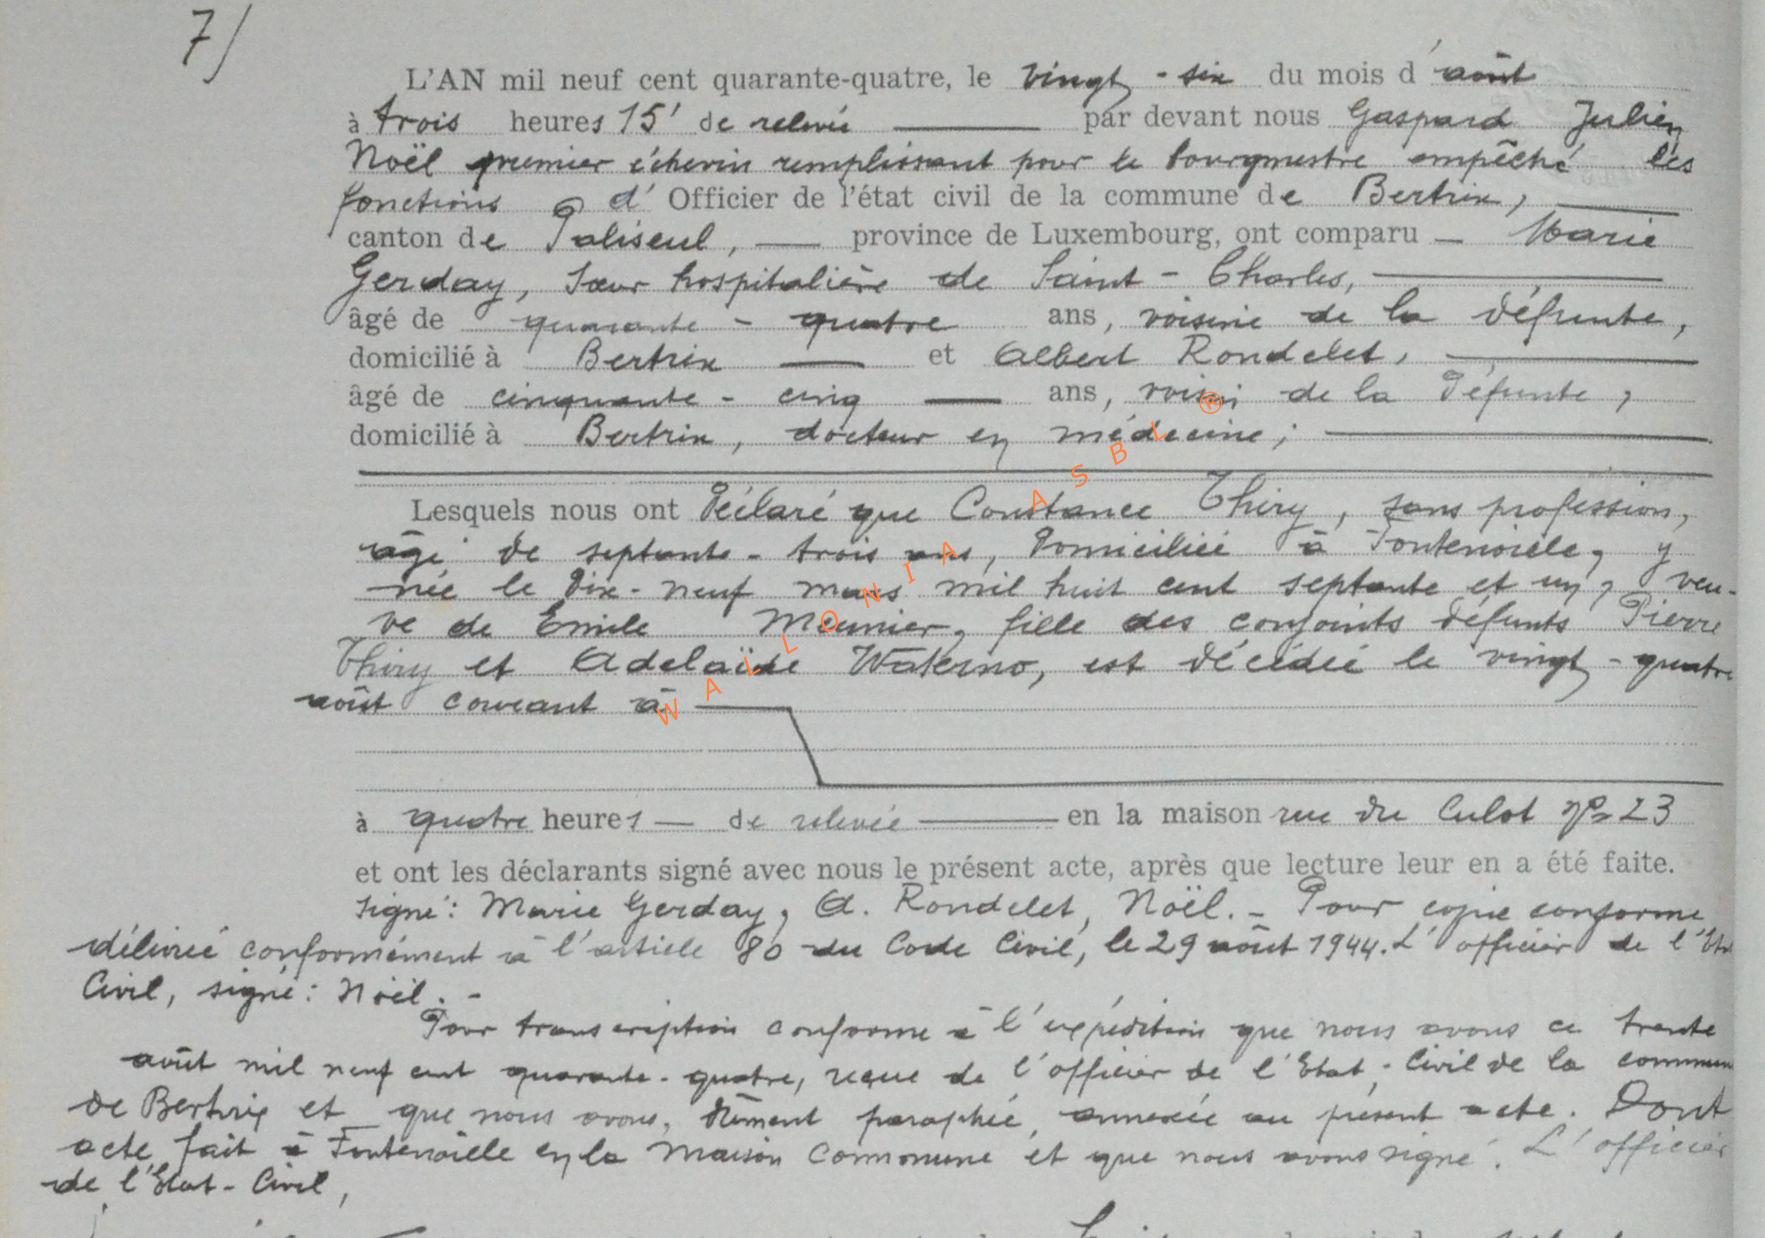 7/
L'AN mil neuf cent quarante-quatre, le vingt - six du mois d'août
à trois heures 15' de relevée par devant nous Gaspard Julien
Noël premier échevin remplissant pour le bourgmestre empêché les
fonctions d' Officier de l'état civil de la commune de Bertrix,
canton de Paliseul, province de Luxembourg, ont comparu Marie
Gerday, Sœur hospitalière de Saint - Charles,
âgé de quarante - quatre ans, voisine de la défunte,
domicilié à Bertrix et Albert Rondelet,
âgé de cinquante - cinq ans, voisin de la défunte,
domicilié à Bertrix, docteur en médecine;
Lesquels nous ont déclaré que Constance Thiry, sans profession,
âgé de septante - trois ans, domiciliée à Fontenoille, y
née le dix - neuf mars mil huit cent septante et un, veu-
ve de Emile Meunier, fille des conjoints défunts Pierre
Thiry et Adelaïde Waterno, est décédée le vingt - quatre
août courant à
à quatre heures de relevée en la maison rue du Culot n° 23
et ont les déclarants signé avec nous le présent acte, après que lecture leur en a été faite.
signé: Marie Gerday, A. Rondelet, Noël. - Pour copie conforme
délivrée conformément à l'article 80 du Code Civil, le 29 août 1944. L'officier de l'Etat
Civil, signé: Noël. -
Pour transcription conforme à l'expédition que nous avons ce trente
août mil neuf cent quarante - quatre, reçue de l'officier de l'Etat - Civil de la commune
de Bertrix et que nous avons, dûment paraphée, annexée au présent acte. Dont
acte fait à Fontenoille en la Maison Commune et que nous avons signé. L'officier
de l'Etat - Civil,
WALLONIA ASBL ®